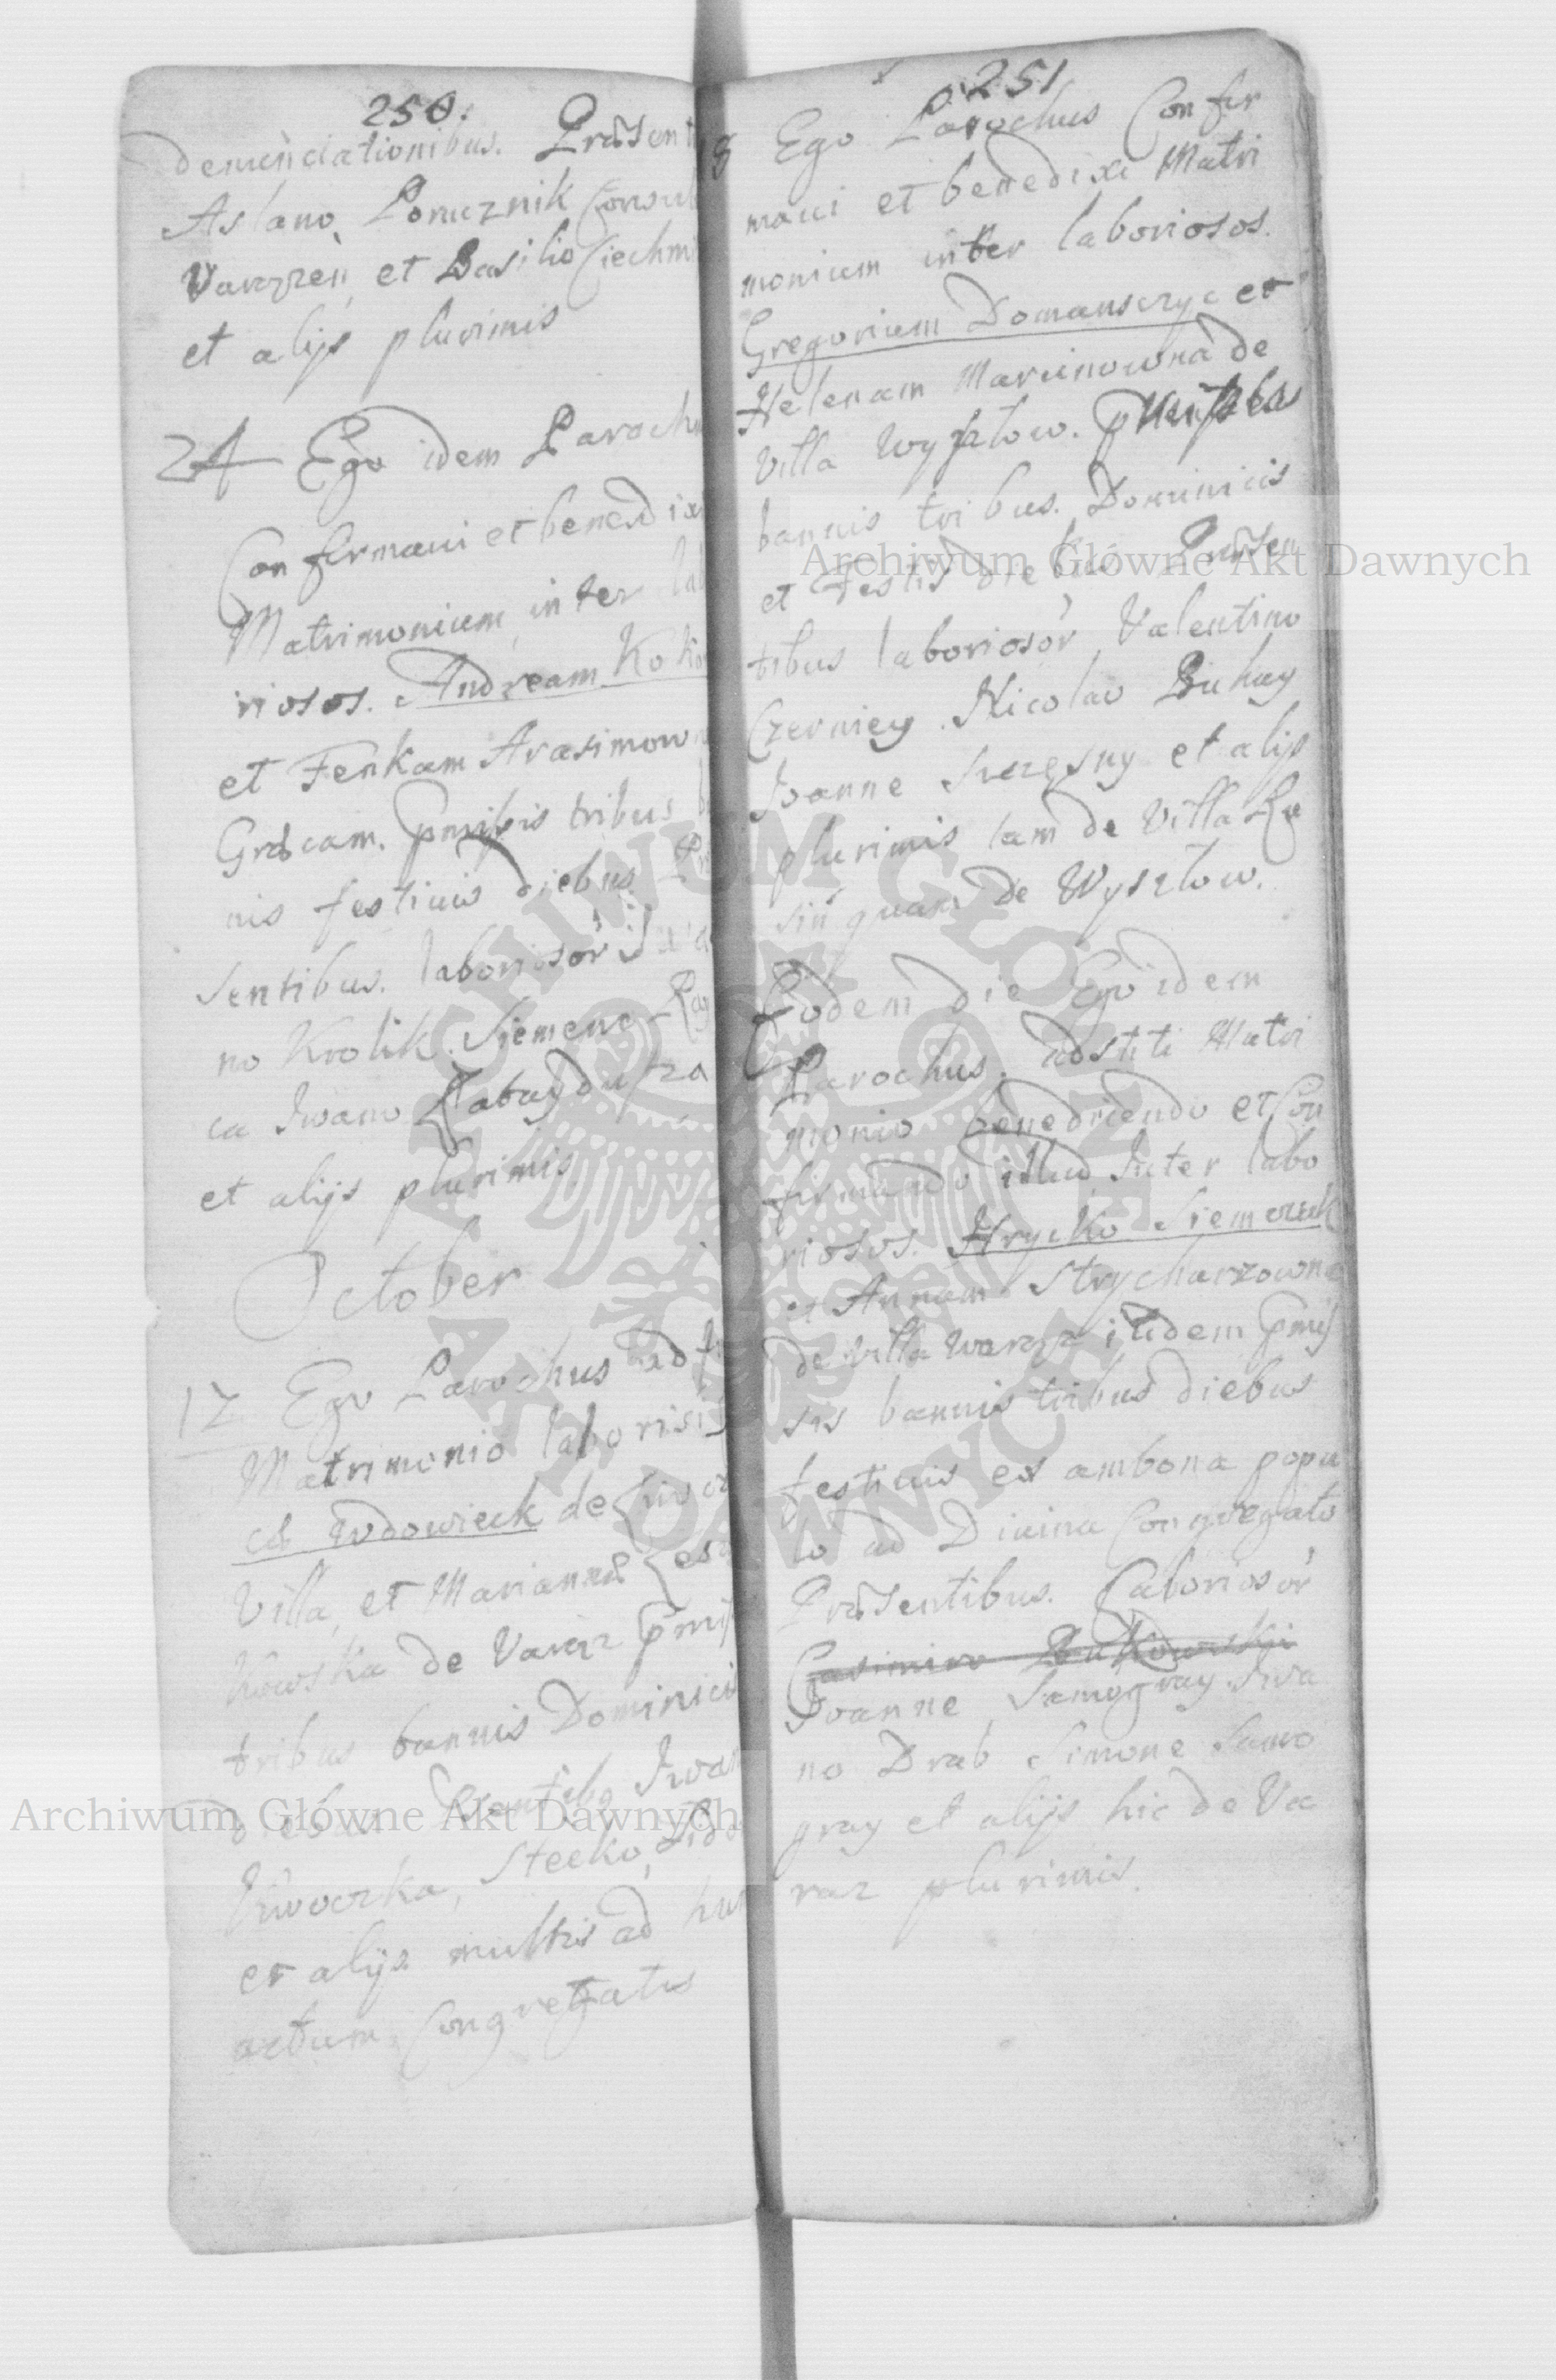 250.
denunciationibus. Præsent
Aslano Poruznik Consul
Varęzen, et Basilio Ciechm
et alijs plurimis
24 Ego idem Paroch
Confirmaui et benedixi
Matrimonium inter la
riosos. Andream Ko
et Fenkam Arasimow
Græcam. Pmissis tribus b
nis festiuis diebus. Pr
sentibus. laborioso͞r
no Krolik. Siemene
ca Iwano
et alijs plurimis.
October
17 Ego Parochus
Matrimonio laborisis
Wdowieck de
Villa, et Marianna
kowska de Varęz Pmis
tribus bannis Dominici
diebus Psentibg Iwan
Kwoczka, Stecko,
et alijs multis ad hu
actum Congregatis
251
8 Ego Parochus Confir
maui et benedixi Matri
monium inter laboriosos.
Gregorium Domansczyc et
Helenam Marcinowna de
Villa Wyszlow. pmissis
bannis tribus. Dominicis
et Festis diebus Præsen
tibus laborioso͞r Valentino
Czerniey. Nicolao Buhay
Joanne Szczęsny et alijs
plurimis tam de Villa Lu
sin quam de Wyszlow.
Eodem die Ego idem
Parochus. adstiti Matri
monio benedicendo et Con
firmando illud Inter labo
riosos. Hrycko Siemczuk
et Annam Strycharzowna
de villa Waręz itidem Pmis
sis bannis tribus diebus
festiuis ex ambona popu
lo ad Diuina Congregato
Præsentibus. Laborioso͞r
Casimiro
Joanne Samogray Iwa
no Drab Simone Samo
gray et alijs hic de Va
raz plurimis.
Archiwum Główne Akt Dawnych
Archiwum Główne Akt Dawnych
ARCHIWUM GŁÓWNE
AKT DAWNYCH